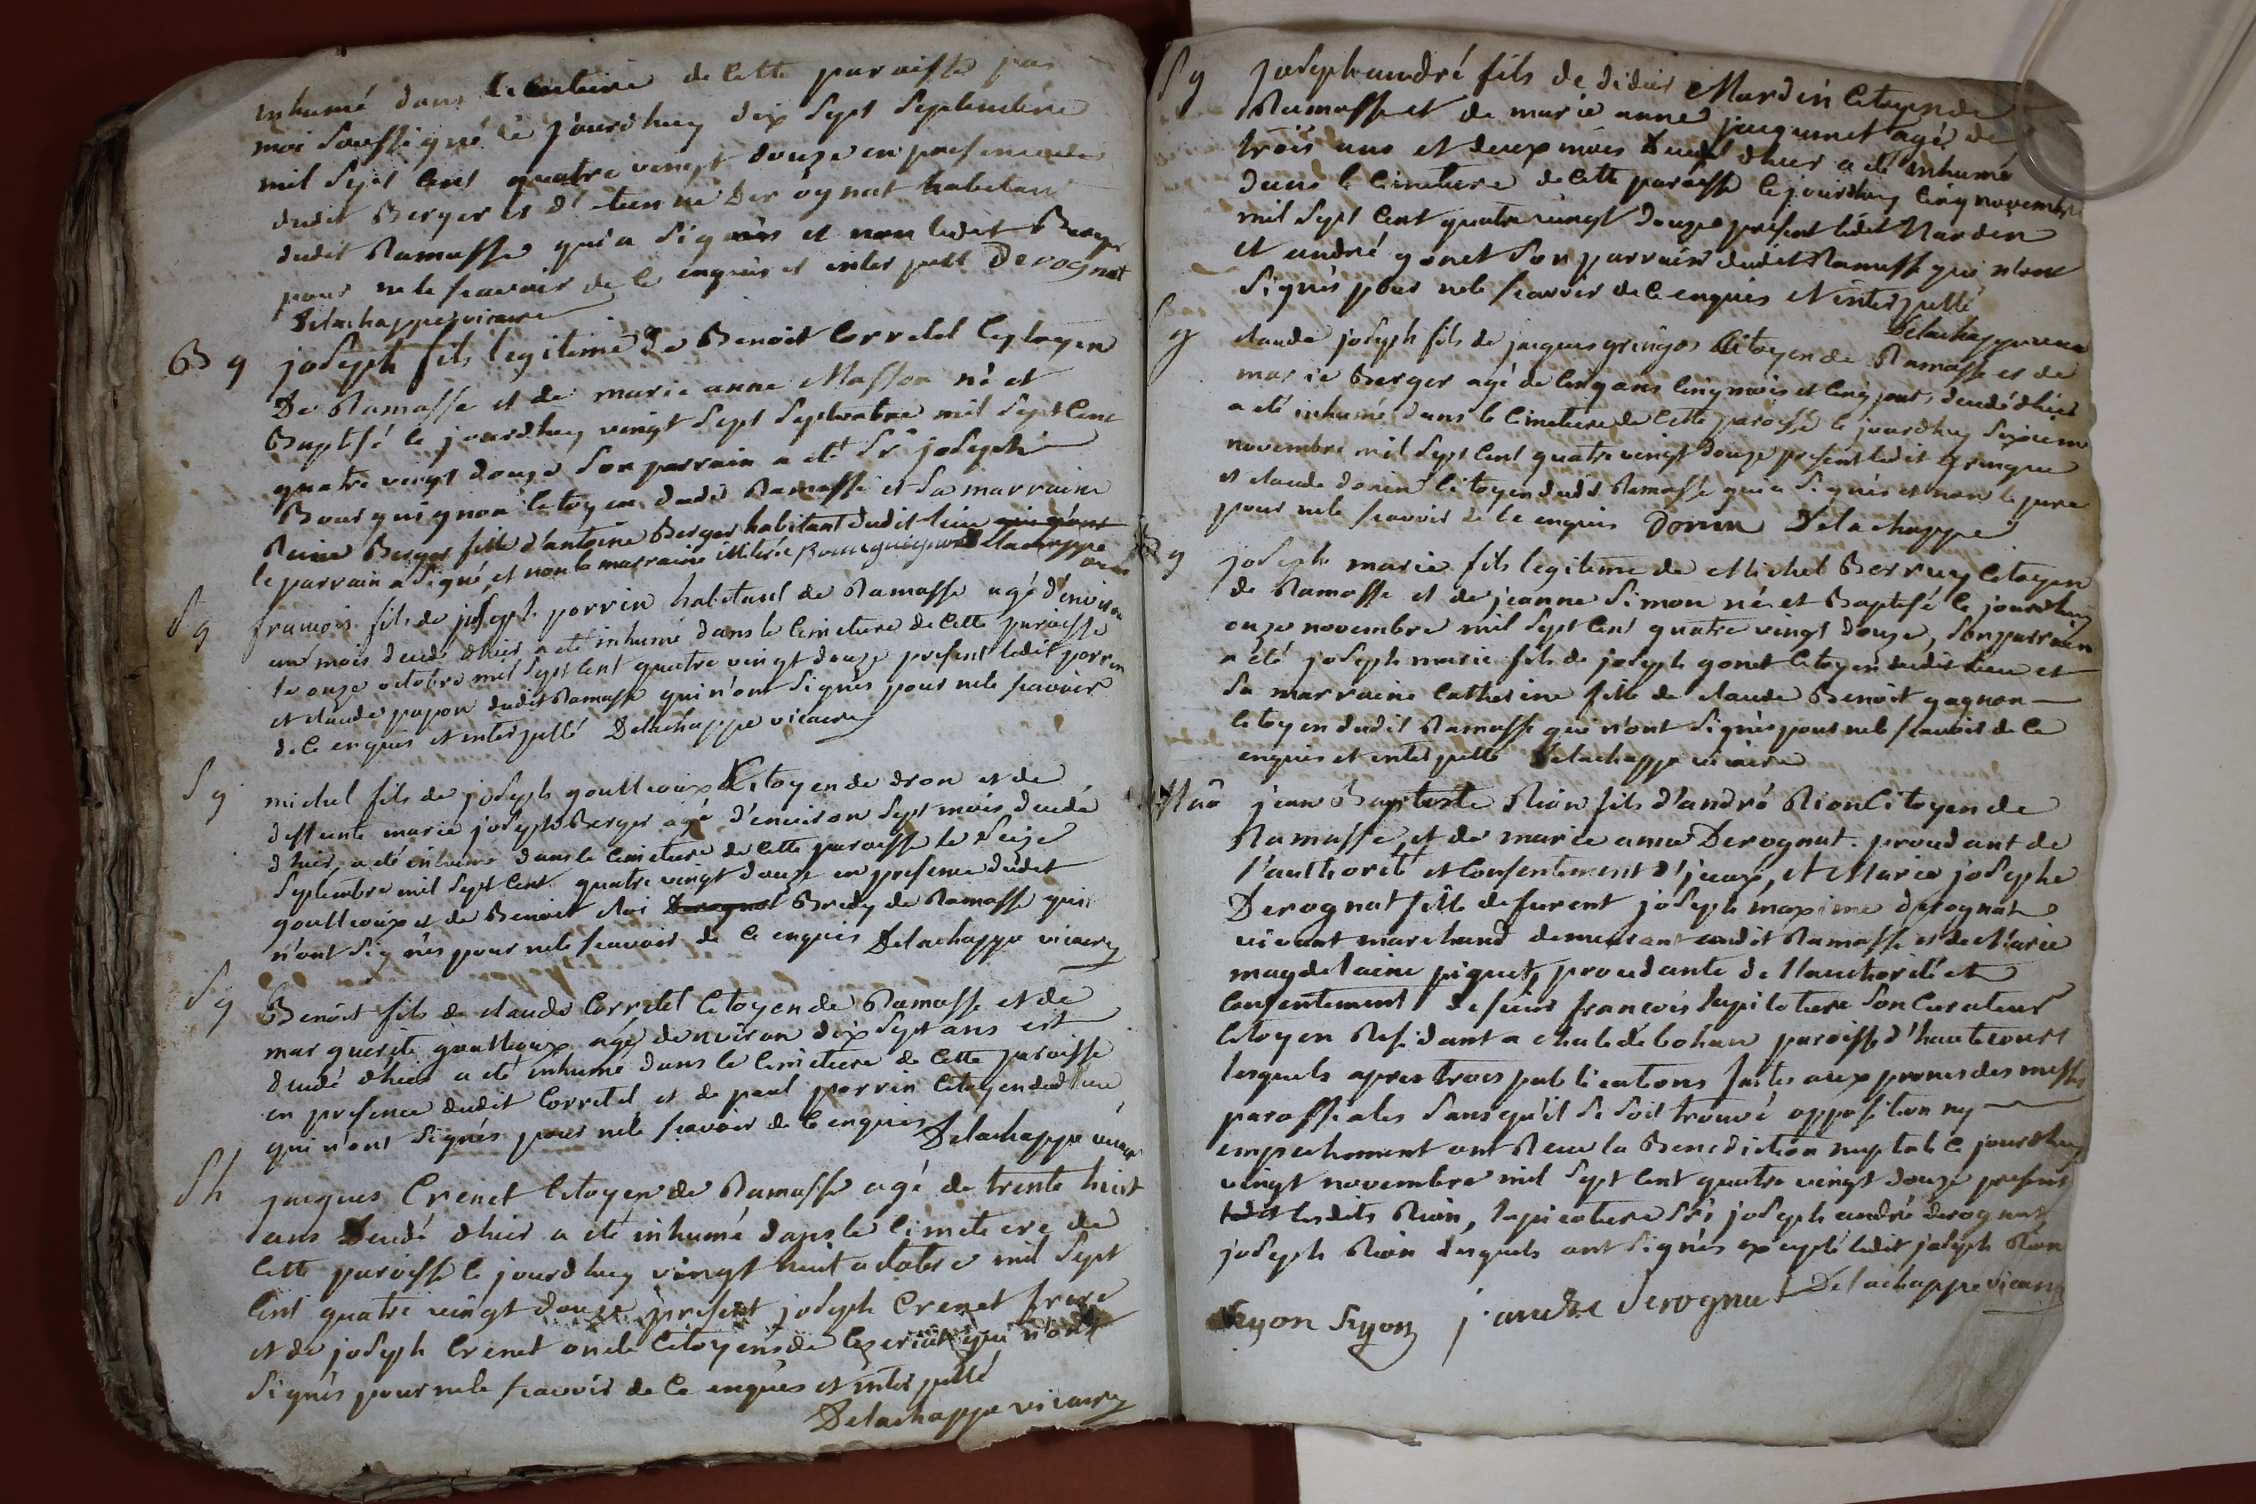 inhumé dans le cimetiere de cette paroisse par
moi soussigné le jourdhuy dix sept septembre
mil sept cent quatre vingt douze en presence
dudit Berger et d'etienne Derognat habitant
dudit Ramasse qui a signés et non ledit Berger
pour ne le scavoir de ce enquis et interpellé Derognat
Delachappe vicaire
B g joseph fils legitime de Benoit Corretel Citoyen
De Ramasse et de marie anne Masson né et
Baptisé le jourdhuy vingt sept septembre mil sept cent
quatre vingt douze son parrain a eté Sr joseph
Bourguignon citoyen dudit Ramasse et sa marraine
Reine Berger fille d'antoine Berger habitant dudit lieu qui n'ont
le parrain a signé, et non la marraine illiterée Bourguignon Delachappe
S g francois fils de joseph perrin habitant de Ramasse agé d'environ
un mois decedé dhier a eté inhumé dans le cimetiere de cette paroisse
le onze octobre mil sept cent quatre vingt douze present ledit perrin
et claude papon dudit Ramasse qui n'ont signés pour ne le scavoir
de ce enquis et interpellé Delachappe vicaire
S g michel fils de joseph goutteoux Citoyen de dron et de
deffunte marie josephe Berger agé d'environ sept mois decedé
dhier a eté inhumé dans le cimetiere de cette paroisse le seize
septembre mil sept cent quatre vingt douze en presence dudit
goutteoux et de Benoit Derognat Bredy de Ramasse qui
n'ont signés pour ne le scavoir de ce enquis Delachappe vicaire
S g Benoit fils de claude Corretel Citoyen de Ramasse et de
marguerite goutteoux agé d'environ dix sept ans est
decedé dhier a eté inhumé dans le cimetiere de cette paroisse
en presence dudit Corretel et de paul perrin Citoyen dudit lieu
qui n'ont signés pour ne le scavoir de ce enquis Delachappe vicaire
Sh jacques Crenet Citoyen de Ramasse agé de trente huit
ans Decedé dhier a eté inhumé dans le cimetiere de
cette paroisse le jourdhuy vingt huit octobre mil sept
cent quatre vingt douze present joseph Crenet frere
et de joseph Crenet oncle Citoyens de Ceyseriat qui n'ont
signés pour ne le scavoir de ce enquis et interpellé
Delachappe vicaire
S g joseph andré fils de didier Mardin Citoyen de
Ramasse et de marie anne jacquemet agé de
trois ans et deux mois Decedé dhier a eté inhumé
dans le cimetiere de cette paroisse le jourdhuy cinq novembre
mil sept cent quatre vingt douze present ledit Marden
et andré gonet son parrain dudit Ramasse qui n'ont
signés pour ne le scavoir de ce enquis et interpellé
Delachappe vicaire
S g claude joseph fils de jacques gringos Citoyen de Ramasse et de
marie Berger agé de cinq ans cinq mois et cinq jours decedé dhier
a eté inhumé dans le cimetiere de cette paroisse le jourdhuy sixieme
novembre mil sept cent quatre vingt douze present ledit gringue
et claude donin citoyen dudit Ramasse qui a signés et non le pere
pour ne le scavoir de ce enquis Donin Delachappe
B g joseph marie fils legitime de Michel Berruy Citoyen
de Ramasse et de jeanne Simon né et Baptisé le jourdhuy
onze novembre mil sept cent quatre vingt douze, son parrain
a eté joseph marie fils de joseph gonet Citoyen dudit lieu et
sa marraine Catherine fille de claude Benoit gagnon
Citoyen dudit Ramasse qui n'ont signés pour ne le scavoir de ce
enquis et interpellé Delachappe vicaire
jean Baptiste Rion fils d'andré Rion Citoyen de
Ramasse, et de marie anne Derognat procedant de
l'authorité et consentement d'jceux, et Marie josephe
Derognat fille de furent joseph maxime derognat
vivant marchand demeurant audit Ramasse et de Marie
magdelaine piquet, procedante de l'authorité et
consentement de sieur francois lapicotiere son Curateur
Citoyen Residant a chale de bohan paroisse d'hautecourt
lesquels apres trois publications faites aux prones des messes
paroissiales sans qu'il se soit trouvé opposition ny
empechement ont Recu la Benediction nuptiale ce jourdhuy
vingt novembre mil sept cent quatre vingt douze present
ledit lesdits Rion, lapicotiere Srs joseph andré derognat
joseph Rion lesquels ont signés excepté ledit joseph Rion
Ryon Ryon j. andré Derognat Delachappe vicaire